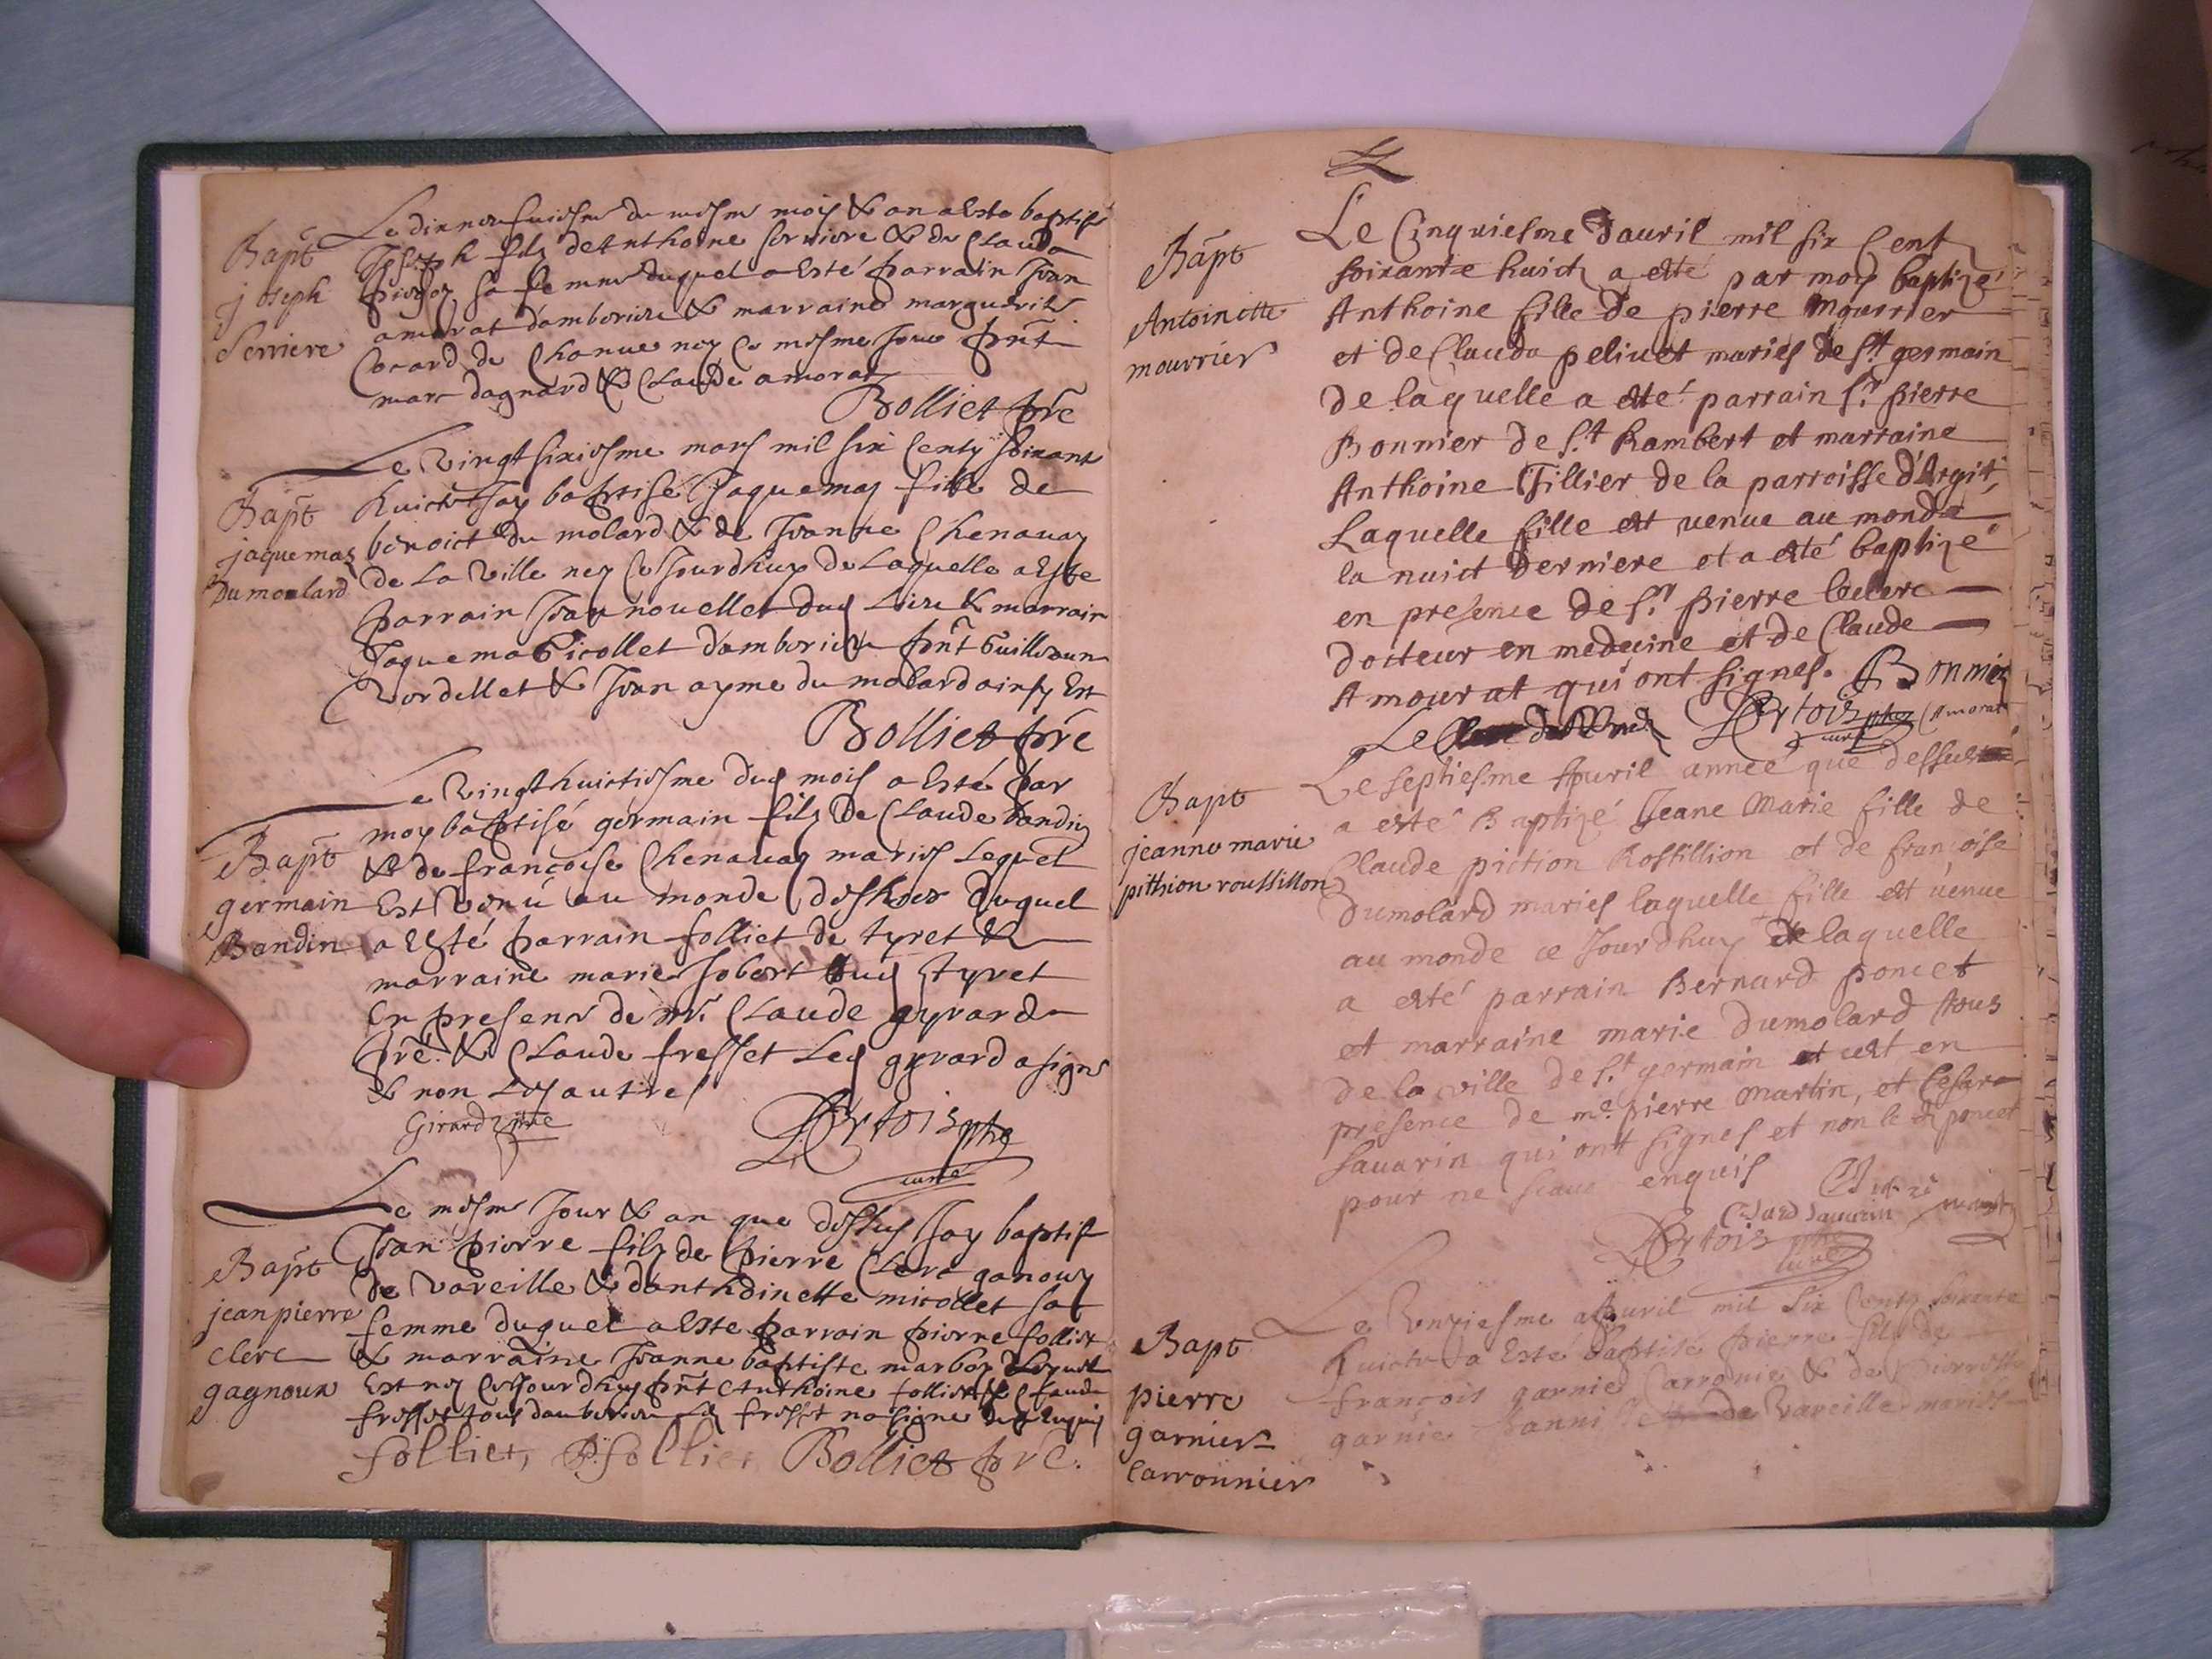 Bapt
joseph
Serriere
Le dix neufuiesme du mesme mois & an a esté baptisé
Joseph filz de Anthoine serriere & de Clauda
sa femme duquel a esté parrain Jean
amorat damborieu & marraine marguerite
de Chanue ney ce mesme jour pnt
marc dagnard & Claude amorat
Bolliet pre
Bapt
jaquemaz
Dumoulard
Le vingt sixiesme mars mil six centz soixant
huict Jay baptise Jaquemaz fille de
benoict du molard & de Jeanne Chenauaz
de La Ville ney ce Jourdhuy de Laquelle a este
parrain Jean nouellet dud Lieu & marrain
Jaquema Picollet damborieu pnt Guilleaum
Vordellet & Jean ayme du molard ainsy est
Bolliet pre
Bapt
germain
Bandin
Le Vingt huictiesme dud mois a esté par
moy baptisé germain filz de Claude bandin
& de françoise Chenauaz maries Lequel
est venu au monde des hier duquel
a esté parrain folliet de tyret &
marraine marie Jobert dud tyret
en presence de mr. Claude gyrard
pre. & Claude fresset Led gyrard a signe
& non Les autres
Girard pre
Dertois pbr
curé
Bapt
jean pierre
clerc
gagnoux
Le mesme Jour & an que dessus Jay baptisé
Jean pierre filz de pierre Clerc ganoux
de Vareille & danthoinette micollet sa
femme duquel a este parrain pierre folliet
& marraine Jeanne baptiste marboz Lequel
est ney ce Jourdhuy pnt Anthoine folliet & Claude
fresset tous damborieu Led fresset na signe
folliet, P. folliet Bolliet pre.
Bapt
Antoinette
mourrier
Le Cinquiesme dauril mil six Cent
soixante huict a esté par moy baptizé
Anthoine fille de pierre Mourrier
et de Clauda peliuet mariés de St germain
de laquelle a esté parrain Sr pierre
Bonnier de St Rambert et marraine
Anthoine Tillier de la parroisse d'Argit,
Laquelle fille est venue au monde
la nuict derniere et a esté baptizé
en presence de Sr pierre leclerc
docteur en medecine et de Claude
Amourat qui ont signés. Bonnier
Dertois pbr Amorat
curé
Bapt
jeanne marie
pithion roussillon
Le septiesme Apuril anneé que dessus
a esté Baptizé Jeane Marie fille de
Claude piction Rossillion et de françoise
Dumolard mariés laquelle fille est venue
au monde ce Jourdhuy de laquelle
a esté parrain Bernard poncet
et marraine marie Dumolard tous
de la ville de St germain et cest en
presence de me. pierre Martin, et Cesar
Sauarin qui ont signés et non le d poncet
pour ne scauoir enquis
Cesard Sauarin
Dertois pbr
curé
Bapt
pierre
garnier
Carronnier
Le Unziesme apuril mil six Centz soixante
huict a este baptisé pierre filz de
françois garnie Carronie & de pierrette
garnie de Vareille maries